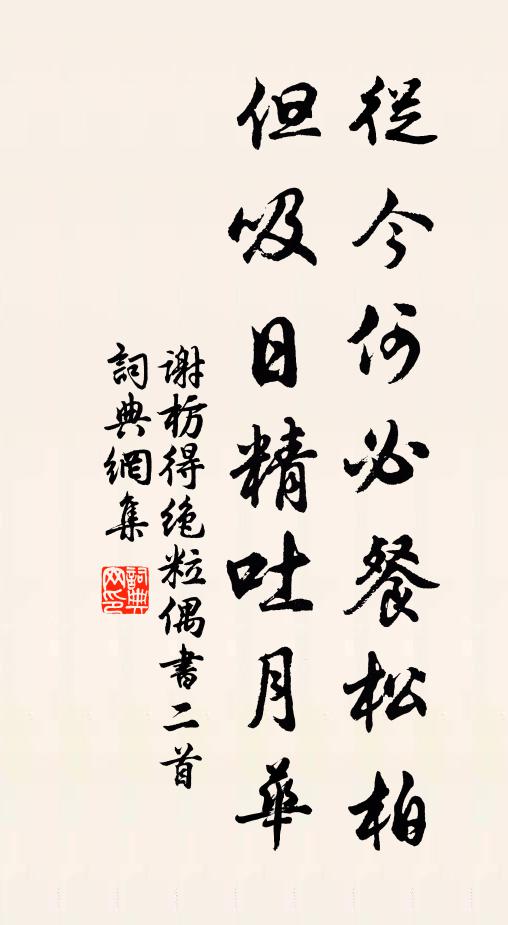 從今何必餐松柏
但吸日精吐月華
謝枋得絕粒偶書二首
詞典網集
詞典网印